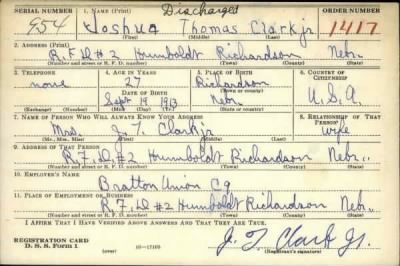 Discharged
SERIAL NUMBER 1. NAME (Print) ORDER NUMBER
954 Joshua Thomas Clark jr 1417
(First) (Middle) (Last)
2. ADDRESS (Print)
R.F.D. #2 Humboldt Richardson Nebr.
(Number and street or R. F. D. number) (Town) (County) (State)
3. TELEPHONE 4. AGE IN YEARS 5. PLACE OF BIRTH 6. COUNTRY OF CITIZENSHIP
none 27 Richardson
DATE OF BIRTH (Town or county)
Sept 19 1913 Nebr. U.S.A.
(Exchange) (Number) (Mo.) (Day) (Yr.) (State or country)
7. NAME OF PERSON WHO WILL ALWAYS KNOW YOUR ADDRESS 8. RELATIONSHIP OF THAT PERSON
Mrs. J. T. Clark jr wife
(Mr., Mrs., Miss) (First) (Middle) (Last)
9. ADDRESS OF THAT PERSON
R.F.D. #2 Humboldt Richardson Nebr.
(Number and street or R. F. D. number) (Town) (County) (State)
10. EMPLOYER'S NAME
Bratton Union Cg
11. PLACE OF EMPLOYMENT OR BUSINESS
R.F.D. #2 Humboldt Richardson Nebr.
(Number and street or R. F. D. number) (Town) (County) (State)
I AFFIRM THAT I HAVE VERIFIED ABOVE ANSWERS AND THAT THEY ARE TRUE.
REGISTRATION CARD
D. S. S. Form 1 16—17105 (Registrant's signature)
J. T. Clark Jr.